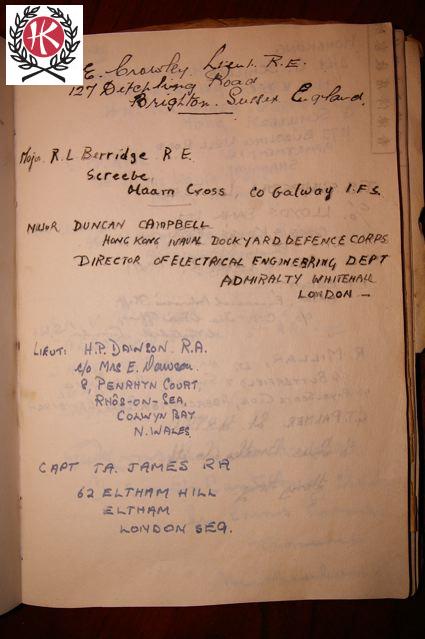 HK
E. Crowley Lieut. R.E.
127 Ditchling Road
Brighton. Sussex England.
Major R.L Berridge R.E.
Screebe
Maam Cross, Co Galway I.F.S.
MAJOR DUNCAN CAMPBELL
HONG KONG NAVAL DOCKYARD DEFENCE CORPS
DIRECTOR OF ELECTRICAL ENGINEERING DEPT
ADMIRALTY WHITEHALL
LONDON —
LIEUT: H.P. DAWSON R.A.
c/o MRS E. Dawson
8, PENRHYN COURT,
RHÔS-ON-SEA,
COLWYN BAY
N. WALES.
CAPT T.A. JAMES RA
62 ELTHAM HILL
ELTHAM
LONDON SE9.